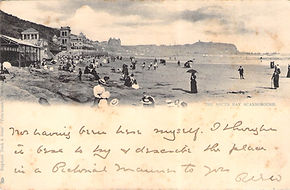 THE SOUTH BAY SCARBOROUGH.
Not having been here myself. I thought
it best to try & describe the place
in a Pictorial manner to you